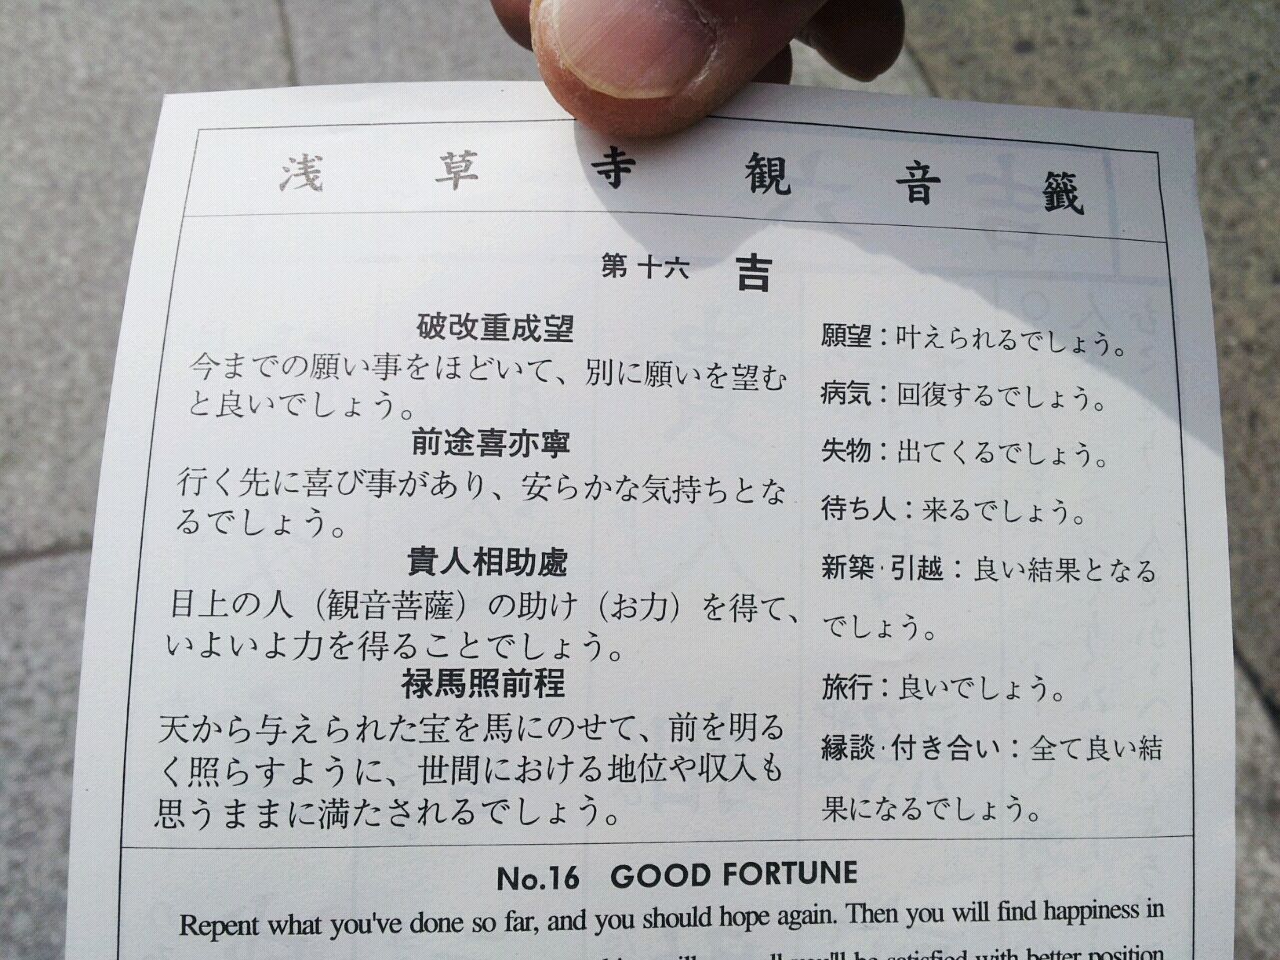 浅草寺観音籤
第十六 吉
破改重成望
今までの願い事をほどいて、別に願いを望む
と良いでしょう。
前途喜亦寧
行く先に喜び事があり、安らかな気持ちとな
るでしょう。
貴人相助處
目上の人（観音菩薩）の助け（お力）を得て、
いよいよ力を得ることでしょう。
禄馬照前程
天から与えられた宝を馬にのせて、前を明る
く照らすように、世間における地位や収入も
思うままに満たされるでしょう。
願望：叶えられるでしょう。
病気：回復するでしょう。
失物：出てくるでしょう。
待ち人：来るでしょう。
新築・引越：良い結果となる
でしょう。
旅行：良いでしょう。
縁談・付き合い：全て良い結
果になるでしょう。
No.16 GOOD FORTUNE
Repent what you've done so far, and you should hope again. Then you will find happiness in
you'll be satisfied with better position